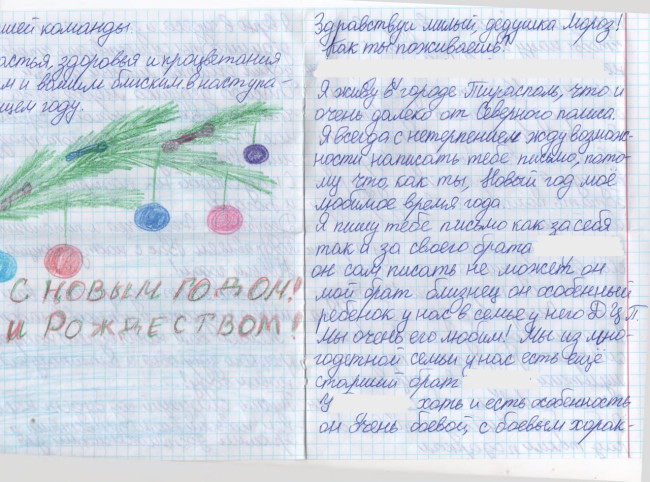 шей команды.
астья, здоровья и кроцветания
м и вашим блиским в наступа-
щем году.
С НОВЫМ ГОДОМ!
И РОЖДЕСТВОМ!
Здравствуй милый, дедушка Мороз!
Как ты поживаешь?
Я живу в городе Тирасполь, что и
очень далеко от Северного полиса.
Я всегда с нетерпением жду возмож-
ности написать тебе письмо, пото-
му что, как ты, Новый год моё
любимое время года.
Я пишу тебе письмо как за себя
так и за своего брата
он сам писать не может он
мой брат близнец он особенный
ребёнок у нас в семье у него Д Ц П.
Мы очень его любим! Мы из мно-
годетной семьи у нас есть ещё
старший брат
У хоть и есть особенность
он очень боевой с боевым харак-